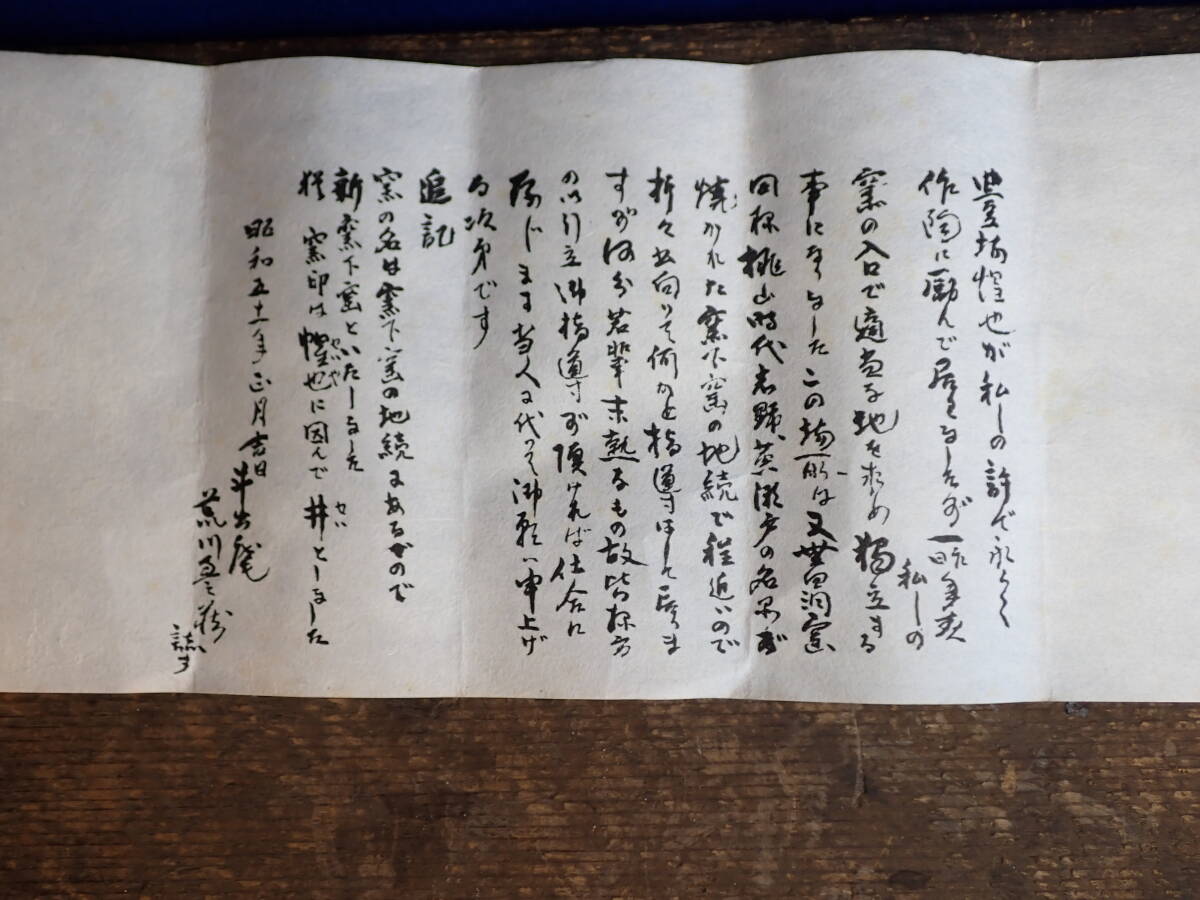 豊場惺也が私しの許で永らく
作陶に励んで居りましたが一昨年春
私しの
窯の入口で適当な地を求め獨立する
事になりました この場所は 又世四洞窯
同様桃山時代志野、黄瀬戸の名品が
焼かれた窯下窯の地続で程近いので
折々出向いて何かと指導はして居りま
すが何分若輩未熟なもの故皆様方
の御引立御指導が頂ければ仕合に
存じます 当人に代って御願い申上げ
る次第です
追記
窯の名は窯下窯の地続にあるものので
新窯下窯といたしました
猶 窯印は惺也に因んで井としました
せいや
せい
昭和五十一年正月吉日
斗出庵
荒川豊蔵
誌す